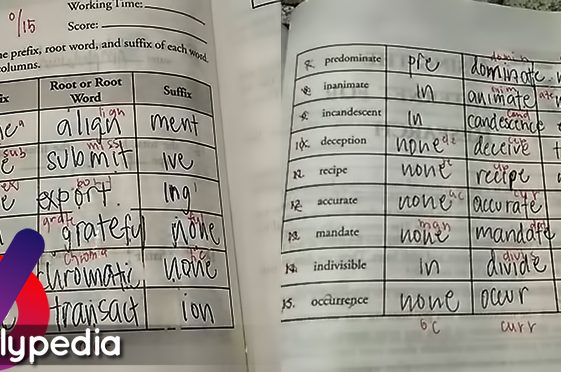 0/15
Working Time:
Score:
e prefix, root word, and suffix of each word
columns.
Root or Root Word
Suffix
align ign ment
sub submit miss ive
export port ing
grat grateful none ful
chroma chromatic none ic
transact ion
predominate pre dominate domin
inanimate in animate anim ate
incandescent in candescence cand
10. deception none de deceive
recipe none recipe
12. accurate none ac accurate cur
mandate none mandate man
indivisible in divide
15. occurrence none occur
oc curr
lypedia